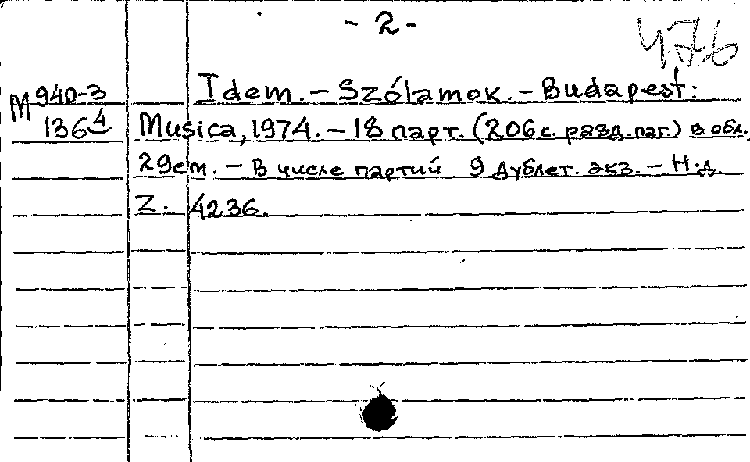 - 2 -
476
M 940-3 Idem. - Szólamok. - Budapest:
136 4 Musica, 1974. - 18 парт. (206 с. разд. паг.) в обл.
29 см. - В числе партий 9 дублет. экз. - Н.д.
Z. 4236.